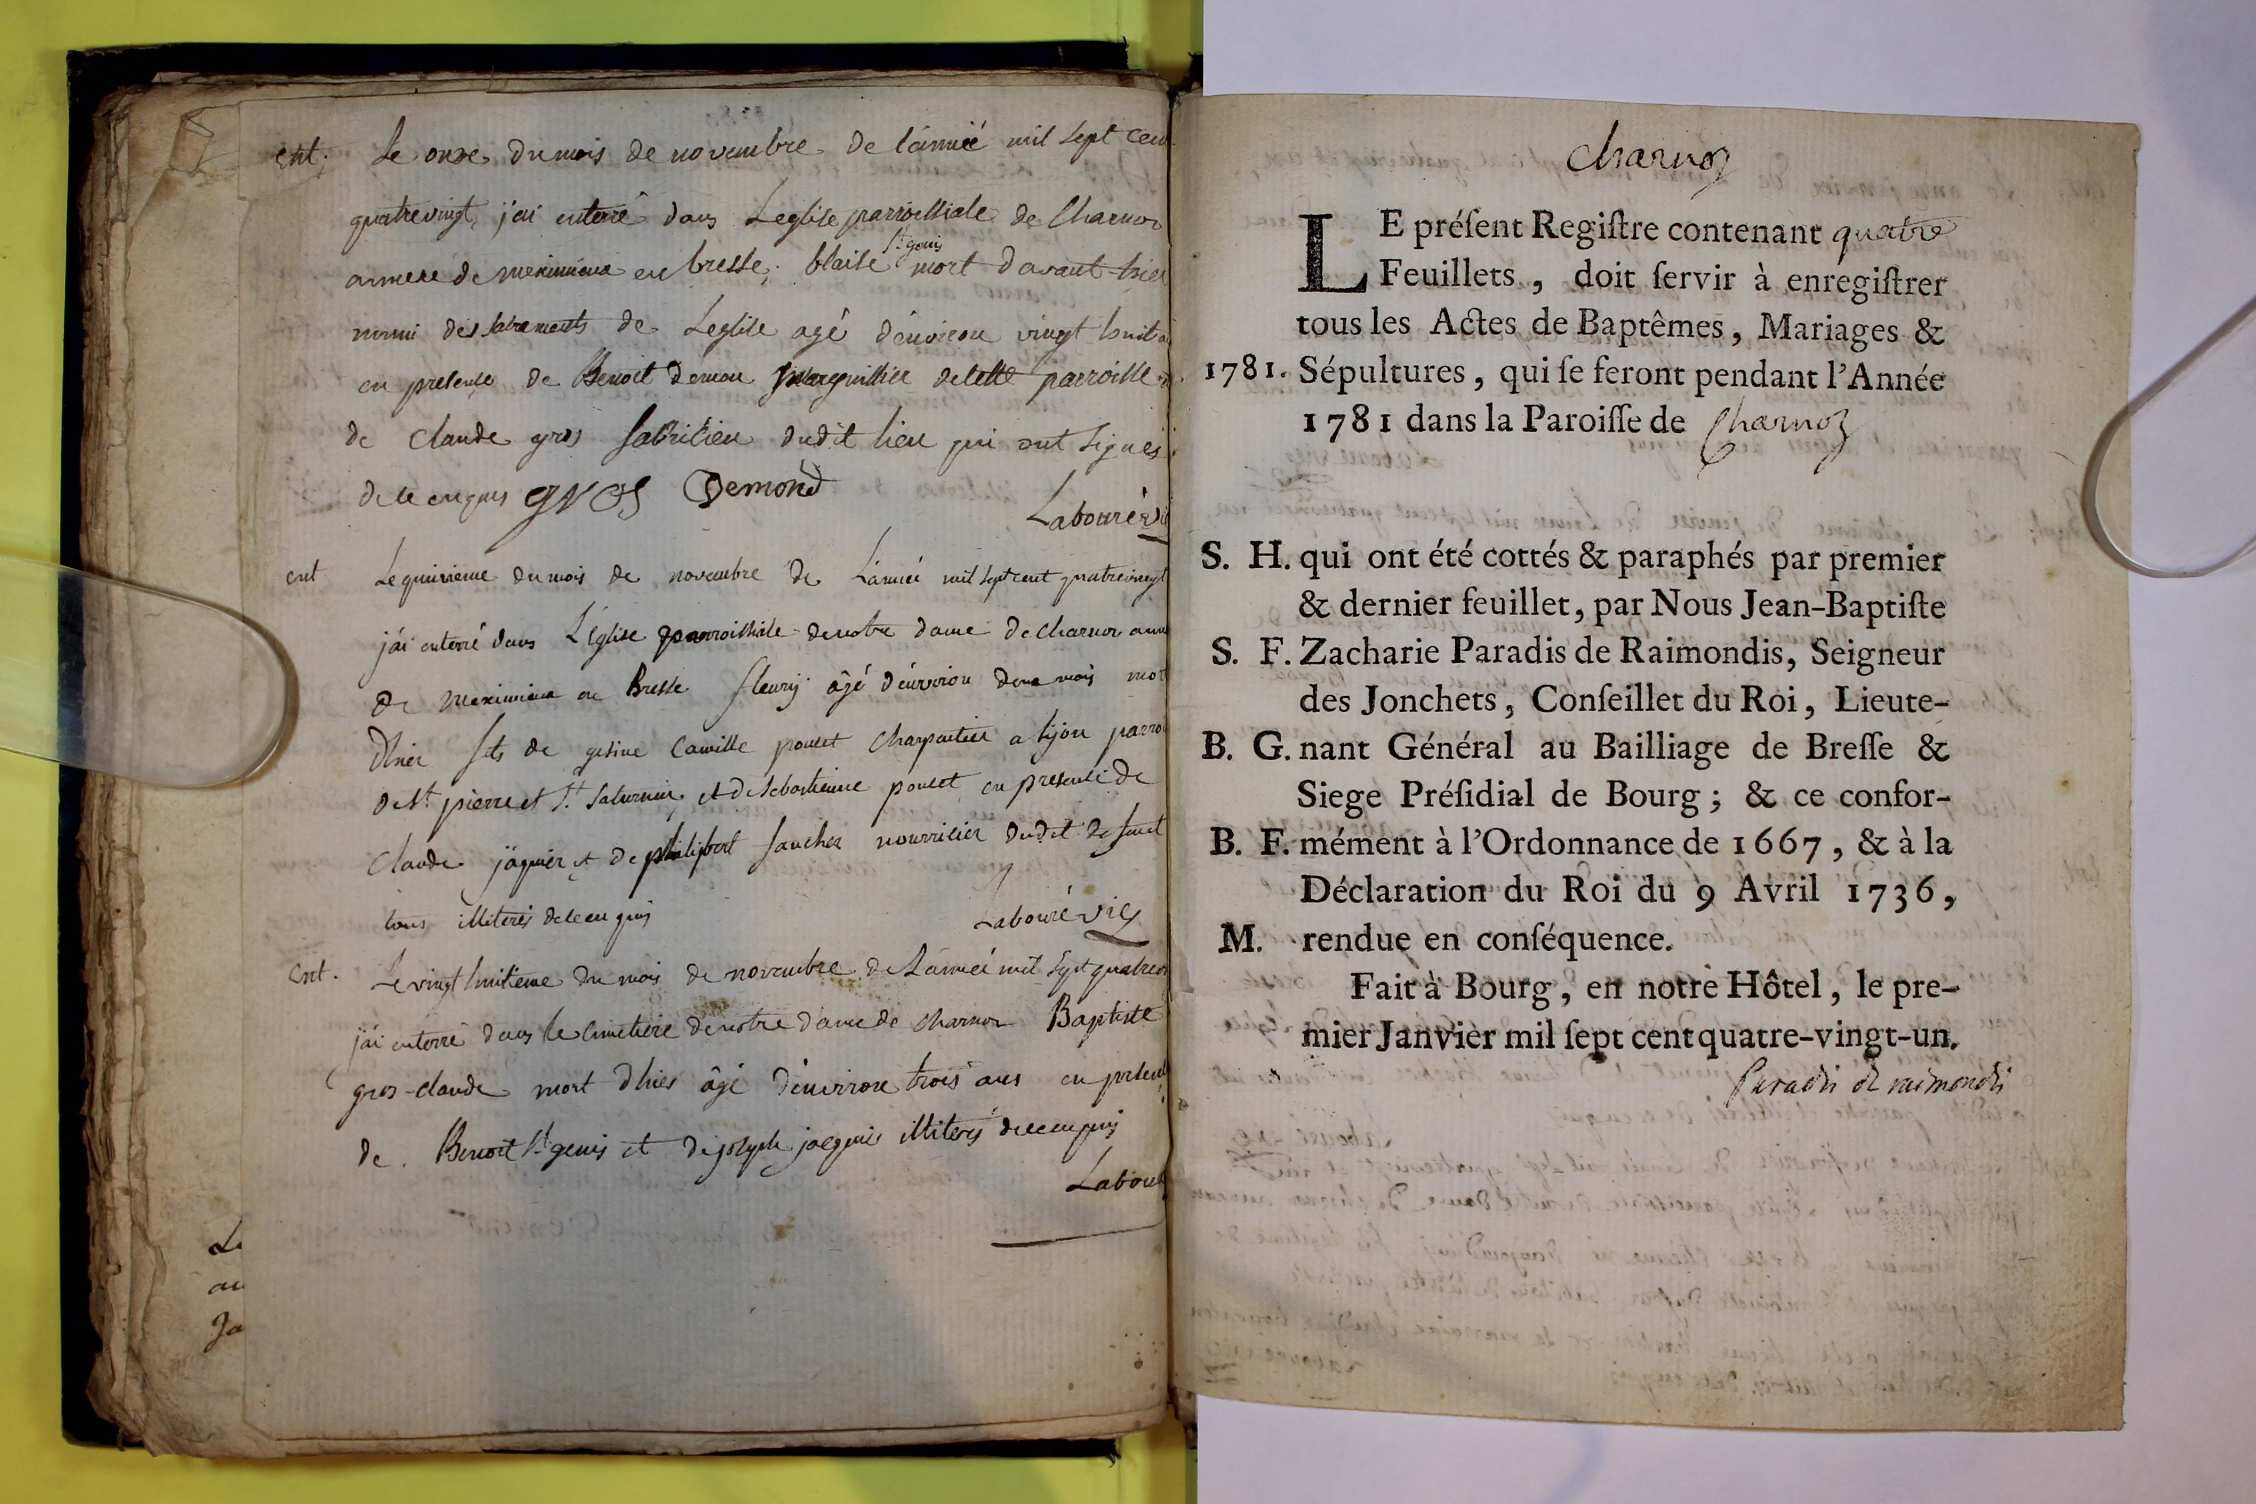 ent. Le onze du mois de novembre de l'année mil sept cen
quatrevingt, j'ai enterré dans Leglise parroissiale de Charnoz
annexe de meximieux en bresse, blaise St genis mort d'avant-hier
muni des sacrements de Leglise agé d'environ vingt huit a
en presence de Benoit demon marguillier de cette parroisse
de Claude gros sabritien dudit lieu qui ont signés
de ce enquis gros Demond
Labouré vic
ent Le quinzieme du mois de novembre de L'année mil sept cent quatrevingt
j'ai enterré dans L'église parroissiale de notre dame de charnoz ann
de meximieux en Bresse fleury âgé d'environ deux mois mor
d'hier fils de Camille poulet charpentier a lyon parroi
de St pierre et St Saturnin, et de sebastienne poulet en presence de
Claude jâquier et de philipbert faucher nourricier dudit defunt
tous illiterés de ce enquis Labouré vic
ent. Le vingt huitieme du mois de novembre de L'année mil sept quatrevi
j'ai enterré dans le cimetiere de notre dame de charnoz Baptiste
gros-claude mort d'hier âgé d'environ trois ans en presence
de Benoit St genis et de joseph jacquier illiterés de ce enquis
Labouré
Le
au
Ja
Charnoz
LE préſent Regiſtre contenant quatre
Feuillets, doit ſervir à enregiſtrer
tous les Actes de Baptêmes, Mariages &
1781. Sépultures, qui ſe feront pendant l'Année
1781 dans la Paroiſſe de Charnoz
S. H. qui ont été cottés & paraphés par premier
& dernier feuillet, par Nous Jean-Baptiſte
S. F. Zacharie Paradis de Raimondis, Seigneur
des Jonchets, Conſeillet du Roi, Lieute-
B. G. nant Général au Bailliage de Breſſe &
Siege Préſidial de Bourg; & ce confor-
B. F. mément à l'Ordonnance de 1667, & à la
Déclaration du Roi du 9 Avril 1736,
M. rendue en conſéquence.
Fait à Bourg, en notre Hôtel, le pre-
mier Janvier mil ſept cent quatre-vingt-un.
Paradis de raimondis